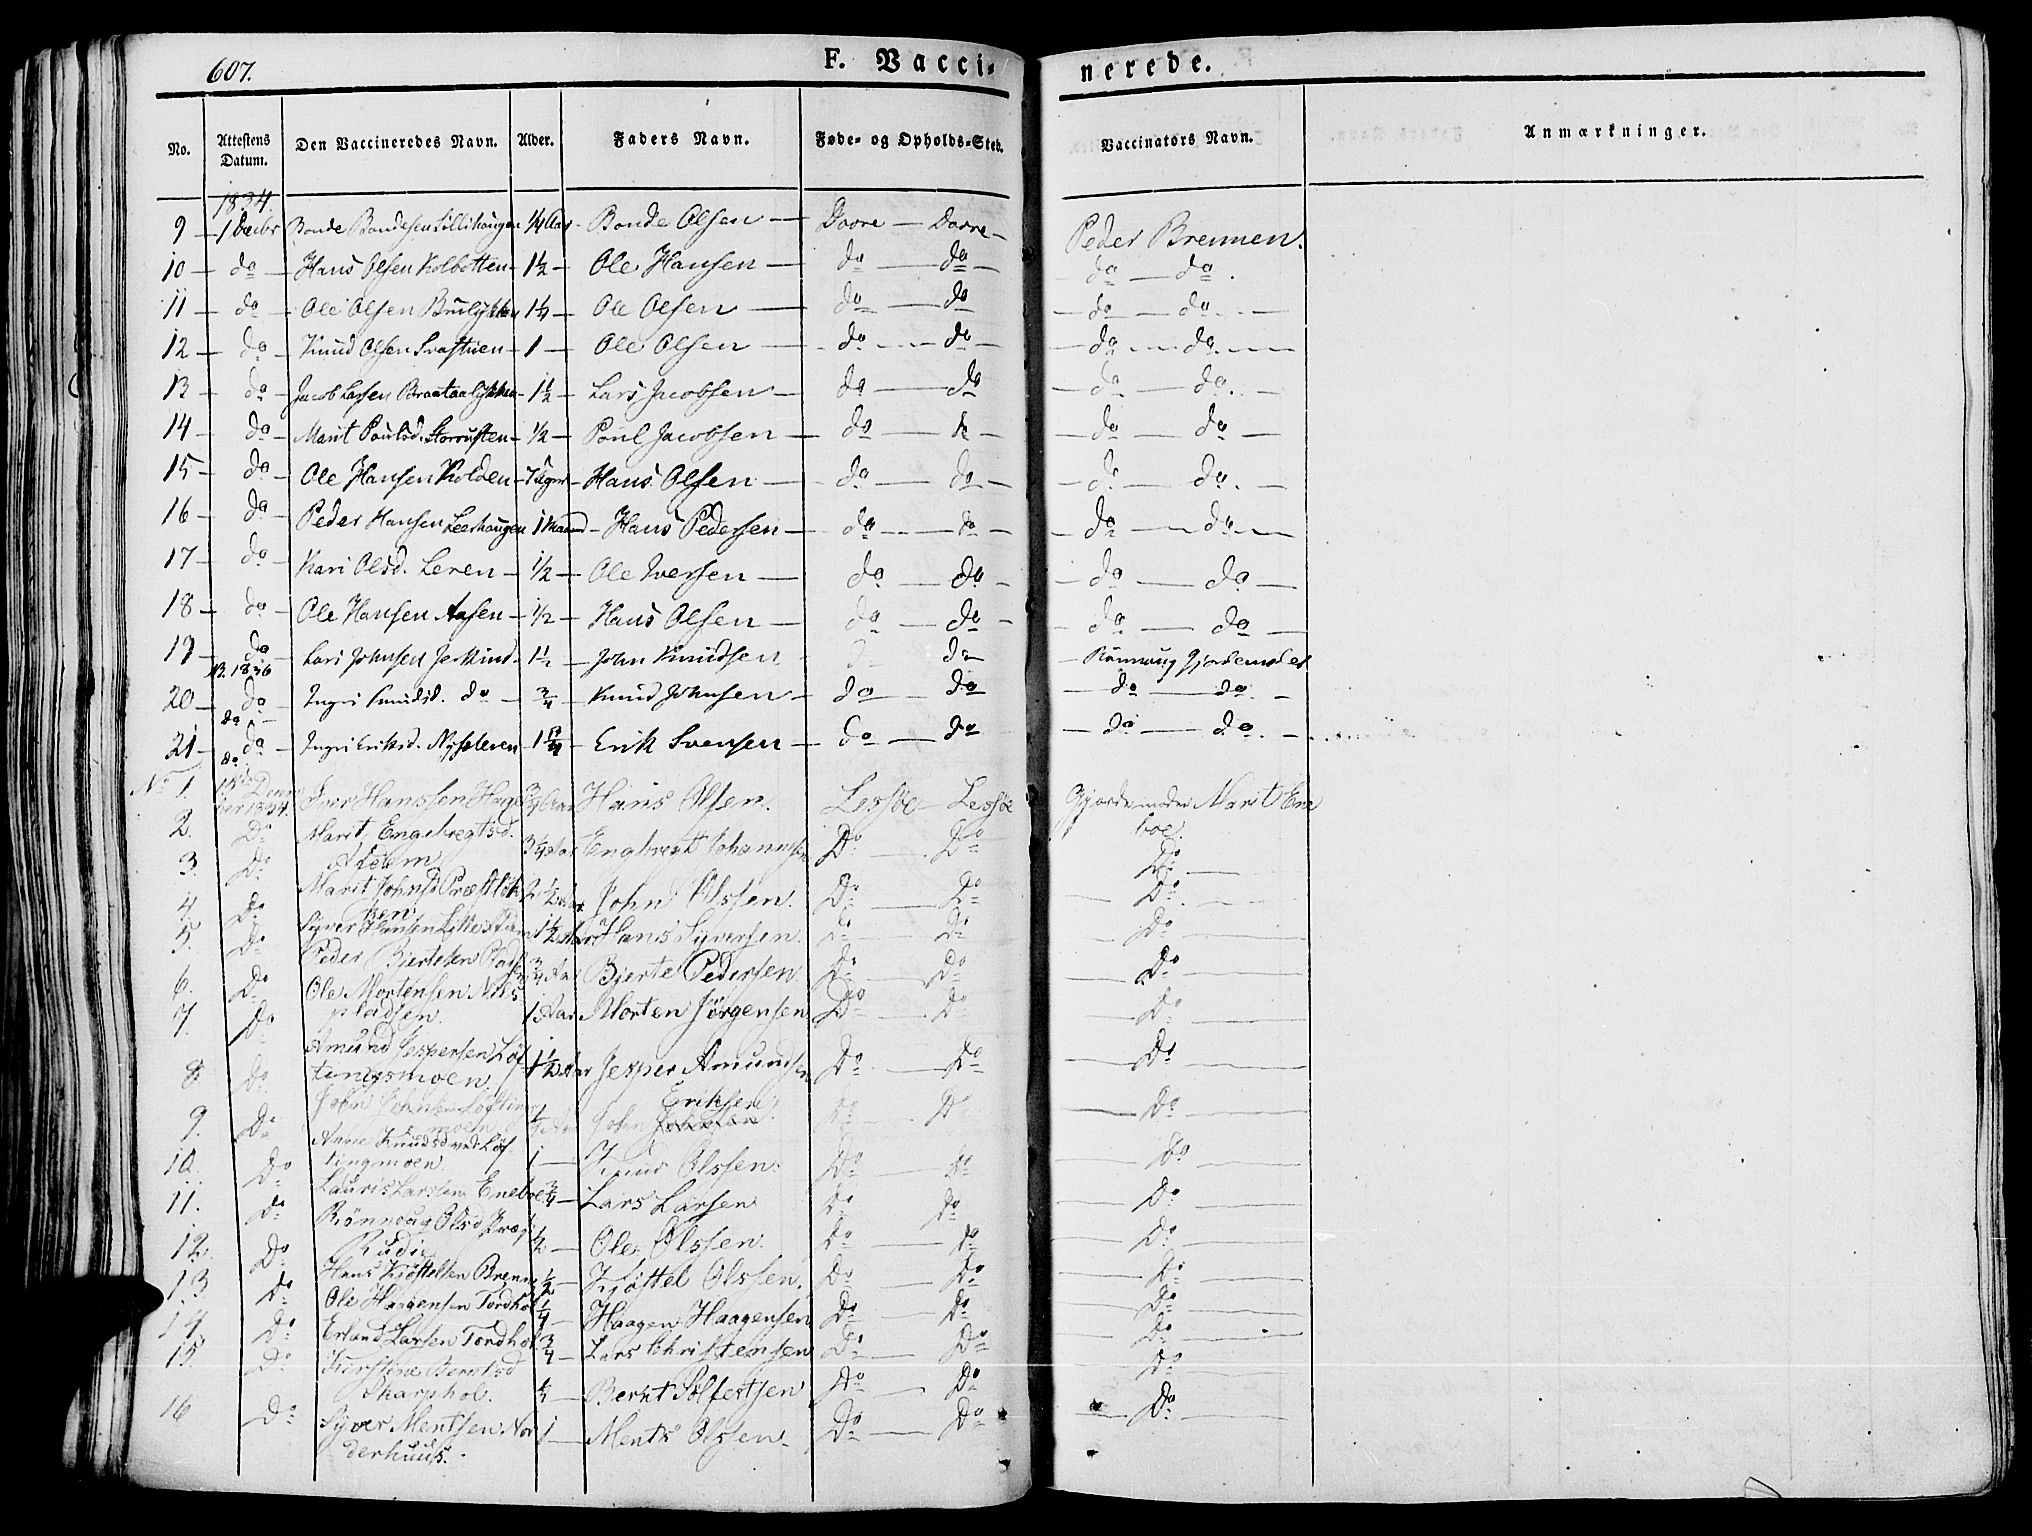 607.
F. Vacci-
nerede.
No.
Attestens Datum.
Den Vaccineredes Navn.
Alder.
Faders Navn.
Føde- og Opholds-Sted.
Vaccinators Navn.
Anmærkninger.
1834.
9 — 1 Decbr Bonde Bondesen Lillehaugen 1/4 Aar - Bonde Olsen — Dovre — Dovre — Peder Brennen.
10 — do — Hans Olsen Kolbotten — 1 1/2 — Ole Hansen — do — do — do — do.
11 — do — Ole Olsen — 1 1/4 — Ole Olsen — do — do — do — do. —
12 — do — Knud Olsen — 1 — Ole Olsen — do — do — do — do. —
13 — do — Jacob Larsen Braataalykken — 1 1/2 — Lars Jacobsen — do — do — do — do. —
14 — do — Marit Poulsd. Storrusten — 1/2 — Poul Jacobsen — do — do — do — do —
15 — do — Ole Hansen Kolden — 7 Uger — Hans Olsen — do — do — do — do. —
16 — do — Peder Hansen Leerhaugen 1 Maaned — Hans Pedersen — do — do — do — do —
17 — do — Kari Olsd. Leren — 1/2 — Ole Iversen — do — do — do — do —
18 — do — Ole Hansen Aasen — 1/2 — Hans Olsen — do — do — do — do —
19 — do — Johnsen Jerkind. 1 1/2 — John Knudsen do — Rönnoug Gjordemoder
1836
20 — do — Ingri Knudsd. do — 3/4 — Knud Johnsen — do — do — do — do. —
do
21 — do — Ingri Eriksd. Nysæteren 1 — Erik Svensen — do — do — do — do. —
do
No 1. 1834. Iver Hansen 3/4 Aar Hans Olsen. Lessøe — Lessøe Gjordemoder Marit Ene
boe.
2. Do Marit Engebregtsd. 3 1/4 Aar Engbregt Johannsen Do — Do Do —
3. Do Marit Johnsd Præstløk 2 1/2 Aar John Olssen. Do — Do Do —
ken
4. Do Syver Hansen 1 1/2 Aar Hans Syversen. Do — Do — Do —
5. Do Peder Bjertelsen 3/4 Aar Bjerte Pedersen Do — Do — Do —
6. Do Ole Mortensen Nils
pladsen. 1 Aar Morten Jörgensen Do — Do — Do —
7. Do Amund Jespersen Löf
tingsmoen. 1 1/2 Aar Jesper Amundsen Do — Do — Do —
8. Do John Johnsen Löftings
moen John Eriksen Do Do — Do —
9. Do Anne Knudsd ved Löf
tingmoen. 1 — Knud Olssen. Do — Do — Do —
10. Do Lauris Larsen Eneboe 3/4 — Lars Larsen Do Do — Do —
11. Do Rönnoug Olsd
Rudi 1/2 — Ole Olssen. Do — Do — Do —
12. Do Hans Kjöstelsen Brenn 1/2 — Kjöstel Olssen. Do — Do — Do —
13 Do Ole Haagensen Tordhol 1/4 — Haagen Haagensen Do — Do — Do —
14 Do Erland Larsen Tordhol 3/4 — Lars Christensen Do — Do — Do —
15. Do Kirstine Berntsd
Skarphol. — Bernt Solfestsen Do — Do — Do —
16 Do Syver Mentsen Nor
derhuus. 1 — Ments Olssen — Do — Do — Do —